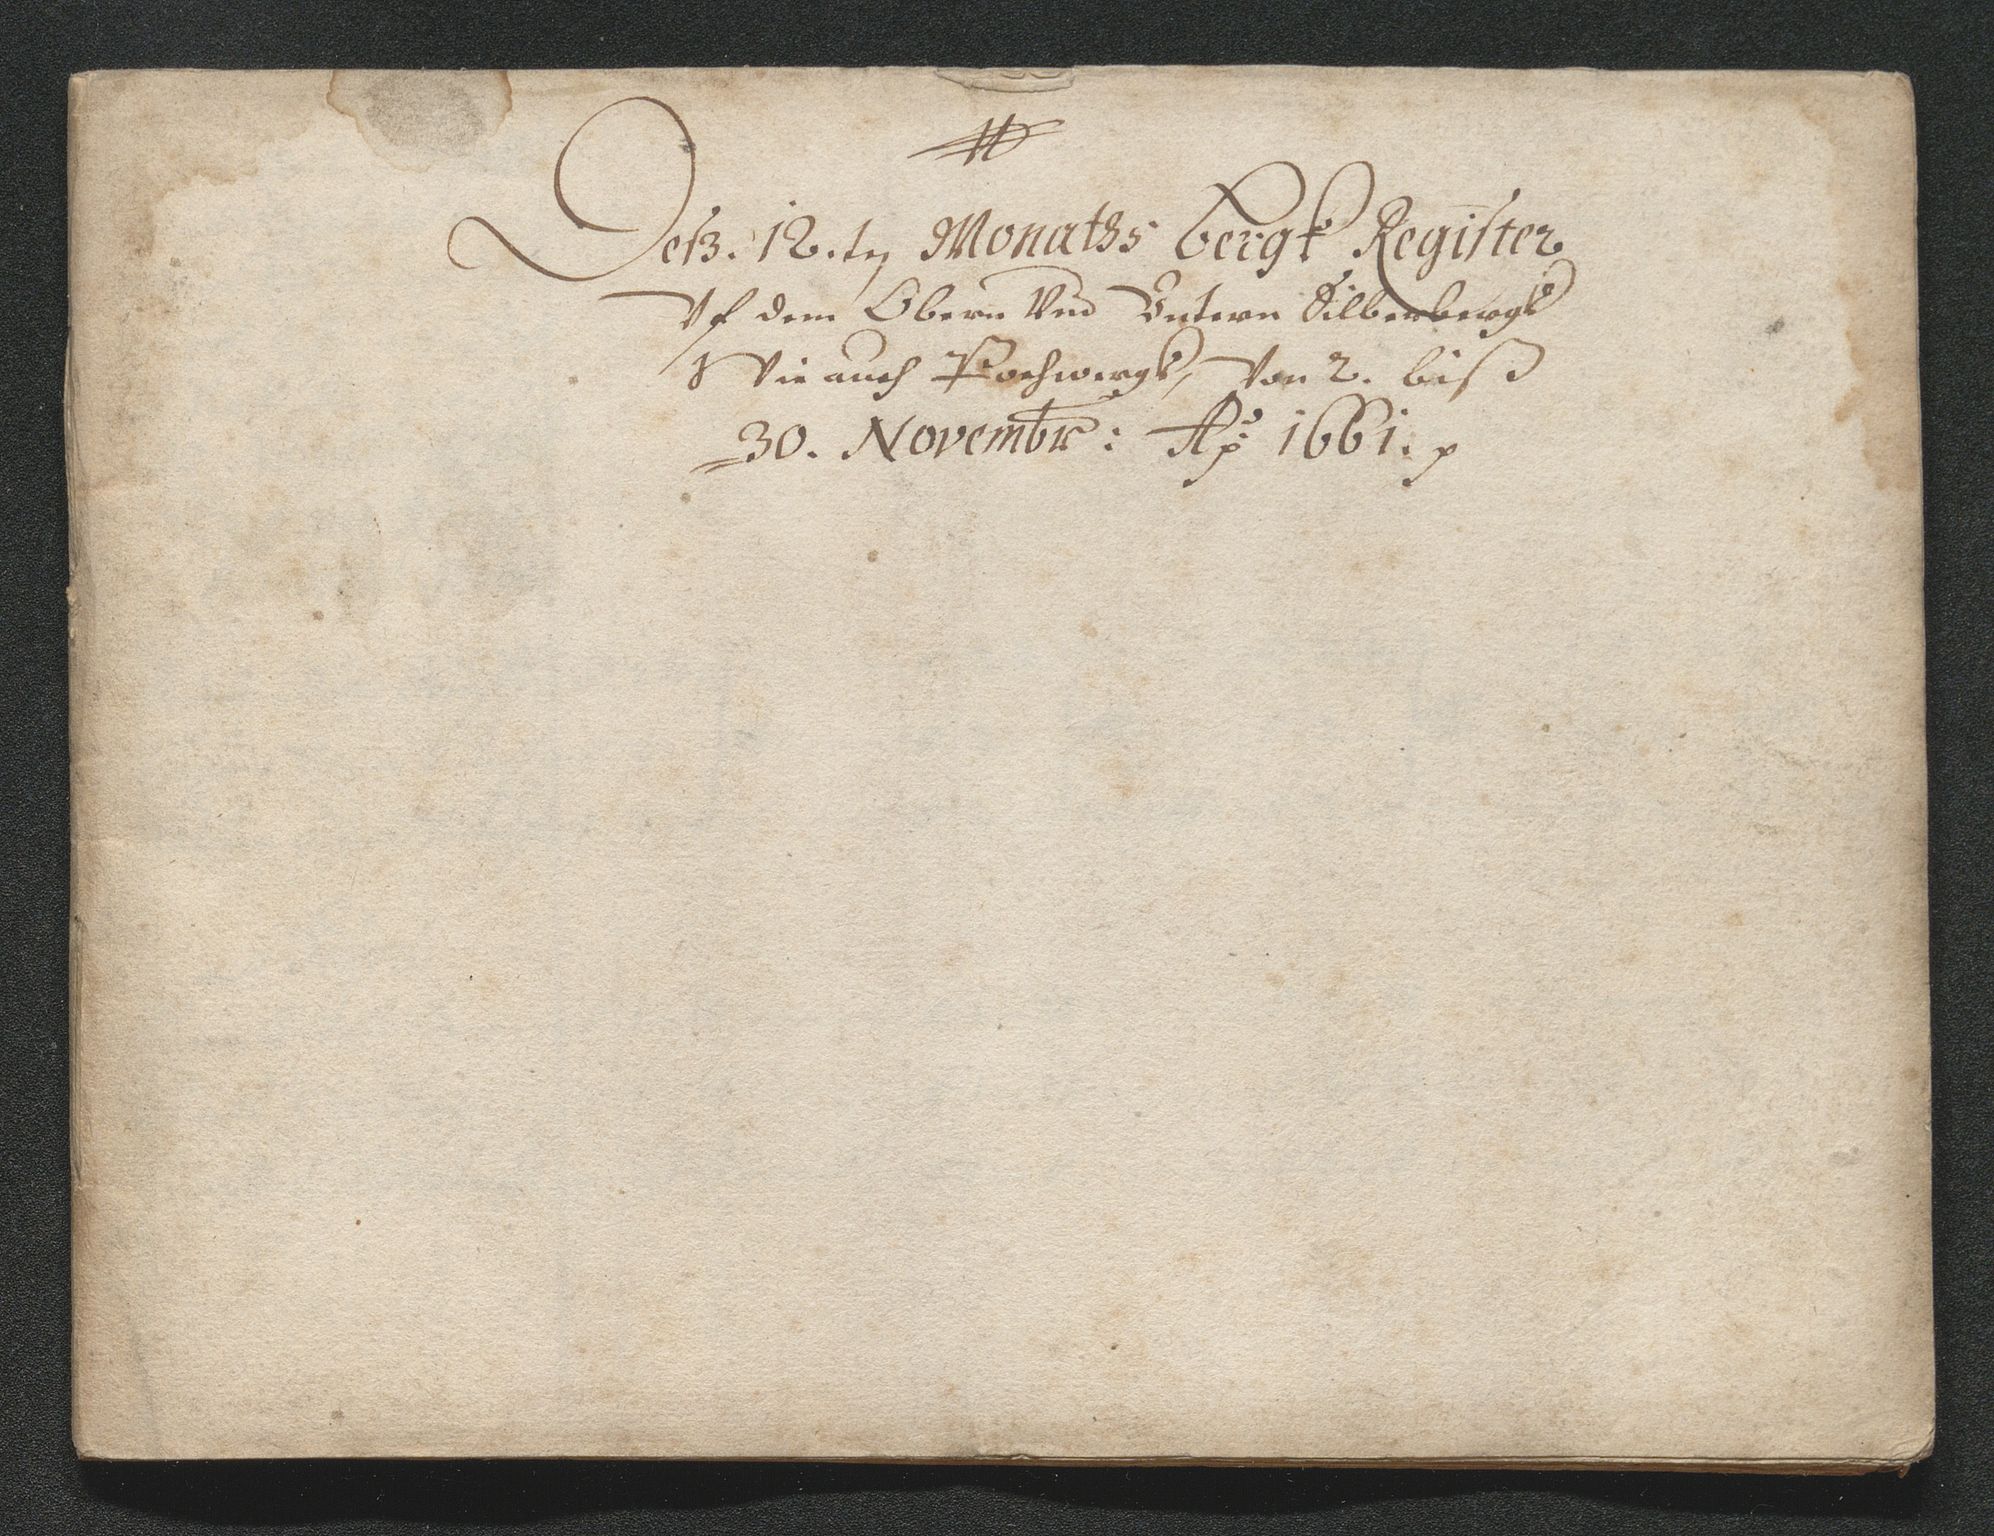 Deß. 12.tn Monaths bergk Register
Vf dem Obern Vnd Vntern Silberbergk
Wie auch Pochwergk, Von 2. biß
30. Novembr: Ao: 1661. p